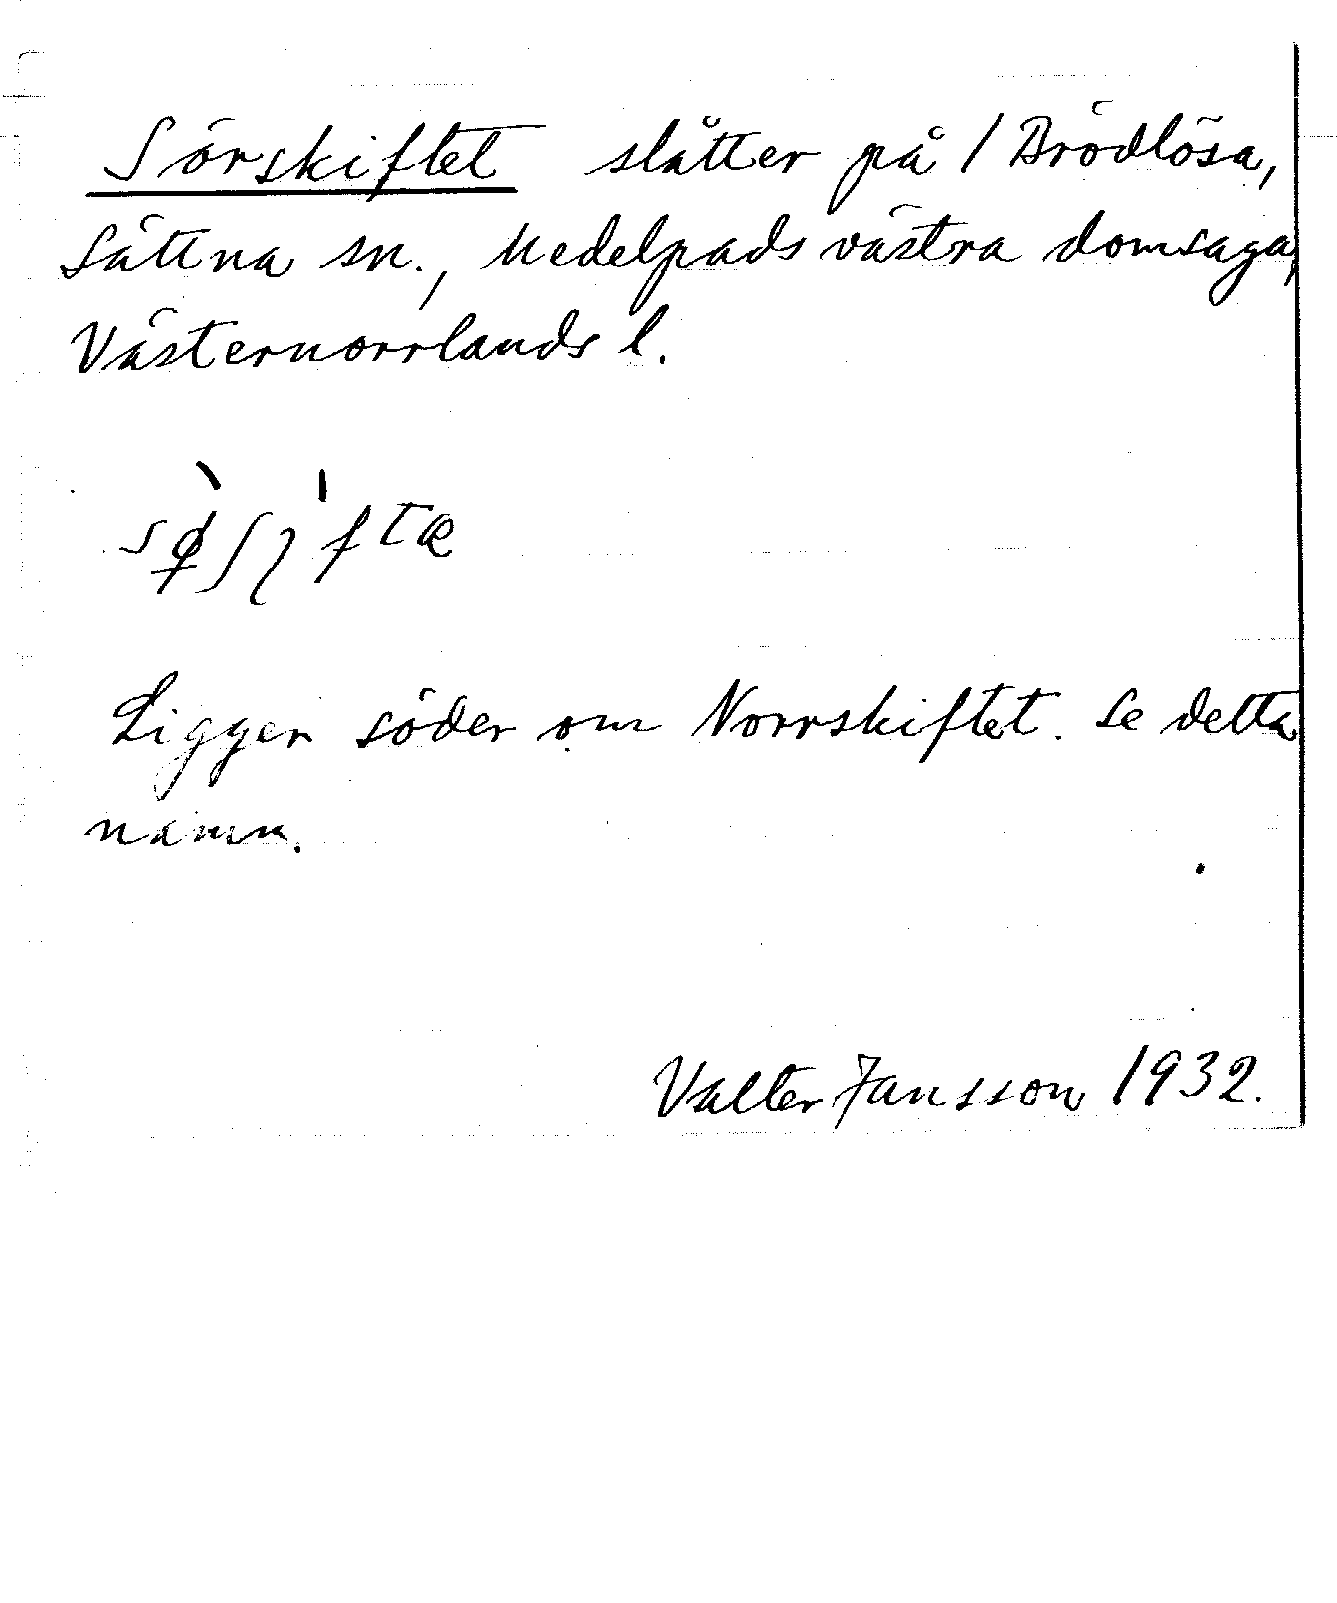 Sörskiftet slåtter på 1 Brödlösa,
Sättna sn., Medelpads västra domsaga,
Västernorrlands l.
Ligger söder om Norrskiftet. Se detta
namn.
Valter Jansson 1932.